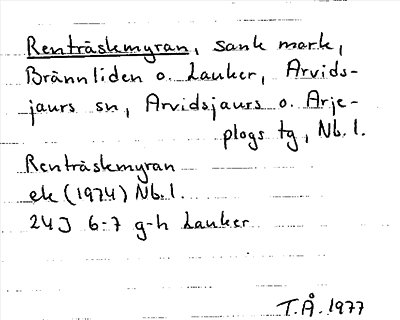 Renträskmyran, sank mark,
Brännliden o. Lauker, Arvids-
jaurs sn, Arvidsjaurs o. Arje-
plogs tg, Nb. l.
Renträskmyran
ek (1974) Nb. l.
24J 6-7 g-h Lauker
T.Å. 1977